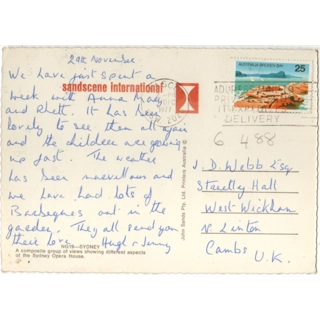 29th November
We have just spent a
week with Anna Mary
and Rhett. It has been
lovely to see them all again
and the children are growing
up fast. The weather
has been marvellous and
we have had lots of
Barbeques out in the
garden. They all send you
their love. Hugh + Jenny
sandscene international
John Sands Pty. Ltd. Printers Australia ©
NG19 - SYDNEY
A composite group of views showing different aspects
of the Sydney Opera House
AUSTRALIA BROKEN BAY
25
DELIVERY
6 488
J. D. Webb Esq
Streetly Hall
West Wickham
N. Linton
Cambs U.K.